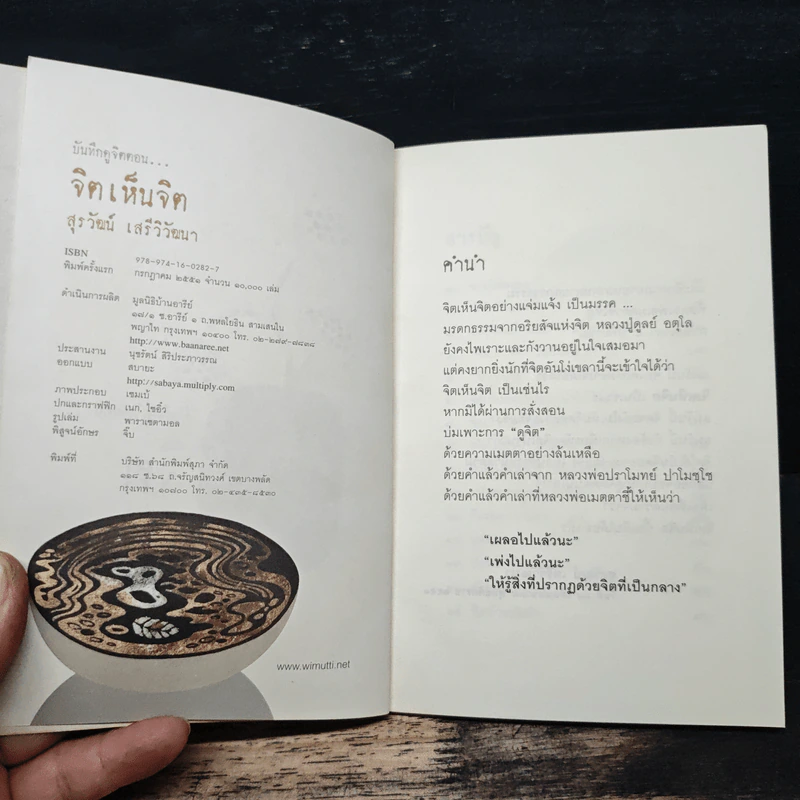 บันทึกดูจิตตอน...
จิตเห็นจิต
สุรวัฒน์ เสรีวิวัฒนา
ISBN 978-974-16-0282-7
พิมพ์ครั้งแรก กรกฎาคม ๒๕๕๑ จำนวน ๑๐,๐๐๐ เล่ม
ดำเนินการผลิต มูลนิธิบ้านอารีย์
๑๗/๑ ซ.อารีย์ ๑ ถ.พหลโยธิน สามเสนใน
พญาไท กรุงเทพฯ ๑๐๔๐๐ โทร. ๐๒-๒๗๙-๗๘๓๘
http://www.baanaree.net
ประสานงาน นุชรัตน์ สิริประภาวรรณ
ออกแบบ สบายะ
http://sabaya.multiply.com
ภาพประกอบ เซมเบ้
ปกและกราฟฟิก เนก, ไซอิ๋ว
รูปเล่ม พาราเซตามอล
พิสูจน์อักษร จิ๊บ
พิมพ์ที่ บริษัท สำนักพิมพ์สุภา จำกัด
๑๑๘ ซ.๖๘ ถ.จรัญสนิทวงศ์ เขตบางพลัด
กรุงเทพฯ ๑๐๗๐๐ โทร. ๐๒-๔๓๕-๘๕๓๐
www.wimutti.net
คำนำ
จิตเห็นจิตอย่างแจ่มแจ้ง เป็นมรรค ...
มรดกธรรมจากอริยสัจแห่งจิต หลวงปู่ดูลย์ อตุโล
ยังคงไพเราะและกังวานอยู่ในใจเสมอมา
แต่คงยากยิ่งนักที่จิตอันโง่เขลานี้จะเข้าใจได้ว่า
จิตเห็นจิต เป็นเช่นไร
หากมิได้ผ่านการสั่งสอน
บ่มเพาะการ “ดูจิต”
ด้วยความเมตตาอย่างล้นเหลือ
ด้วยคำแล้วคำเล่าจาก หลวงพ่อปราโมทย์ ปาโมชฺโช
ด้วยคำแล้วคำเล่าที่หลวงพ่อเมตตาชี้ให้เห็นว่า
“เผลอไปแล้วนะ”
“เพ่งไปแล้วนะ”
“ให้รู้สิ่งที่ปรากฏด้วยจิตที่เป็นกลาง”